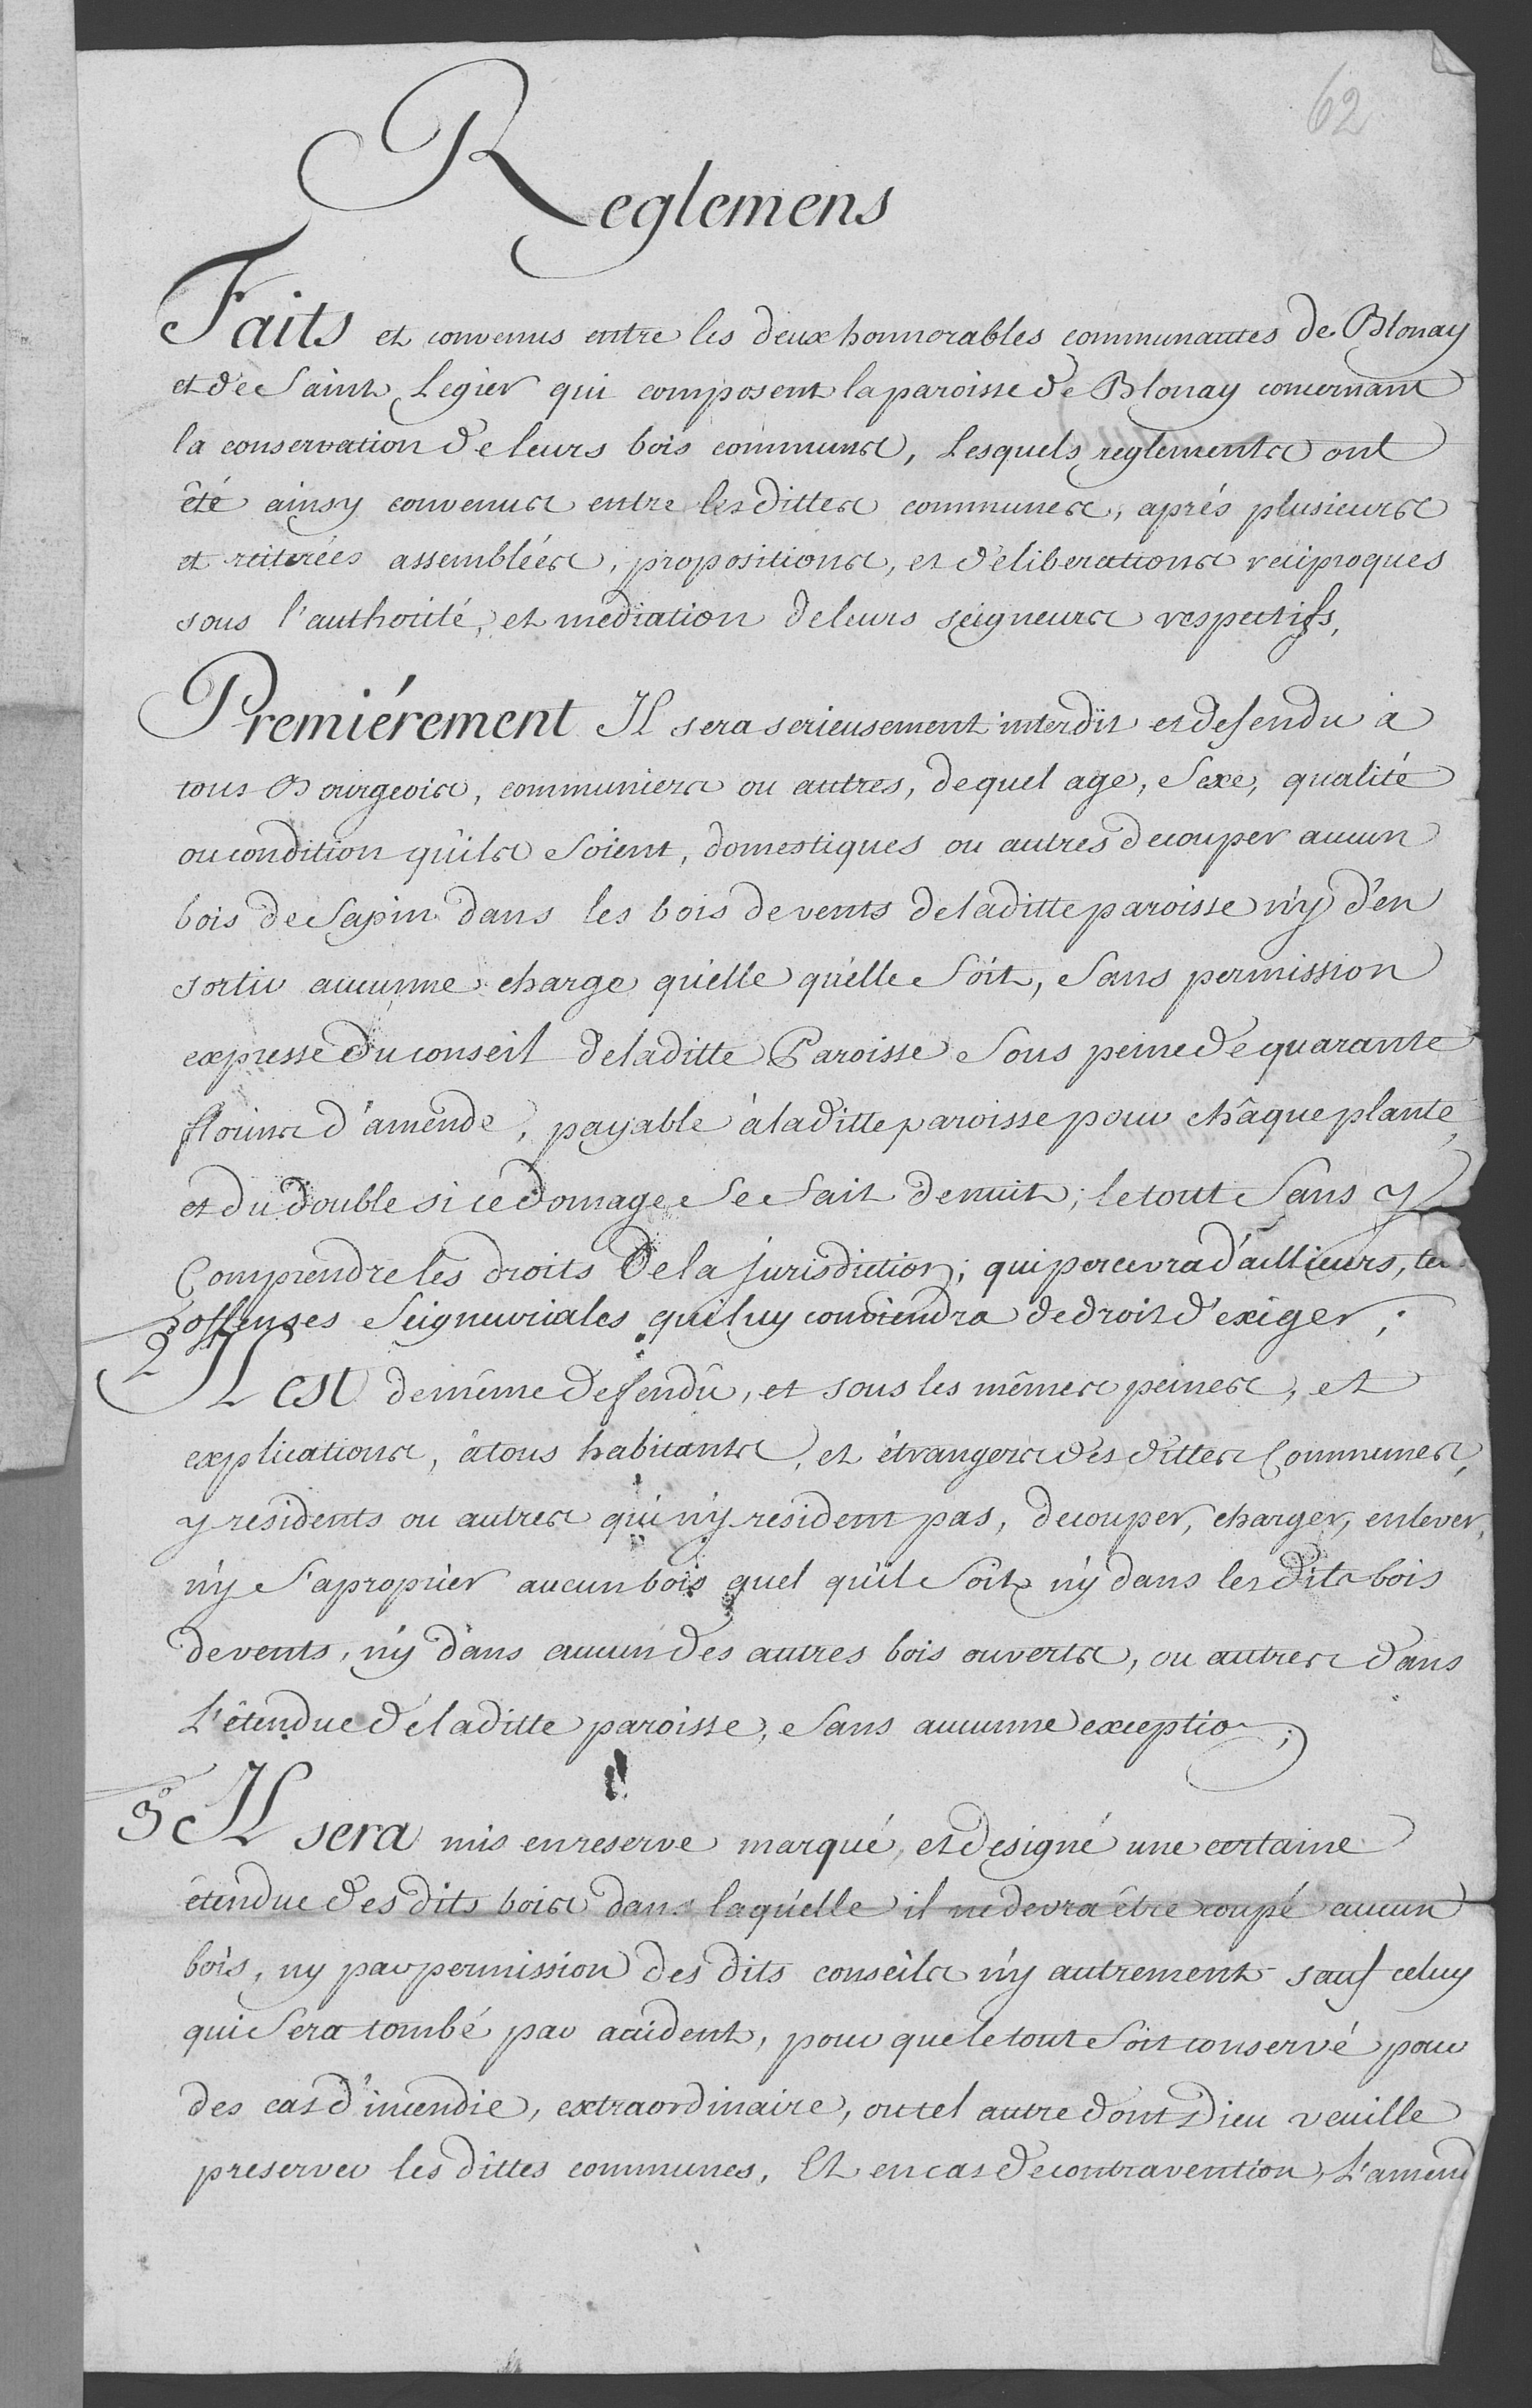 62
Reglemens
Faits et convenus entre les deux honnorables communautes de Blonay
et de Saint Legier qui composent la paroisse de Blonay concernant
la conservation de leurs bois communs, Lesquels reglements ont
êté ainsy convenus entre les dittes communes, aprés plusieurs
et reiterées assemblées, propositions, et déliberations reciproques
sous l'authorité, et mediation de leurs seigneurs respectifs,
Premiérement Il sera serieusement interdit et defendu à
tous Bourgeois, communiers ou autres, de quel age, Sexe, qualité
ou condition qu'ils Soient, domestiques ou autres de couper aucun
bois de Sapin dans les bois de vents de la ditte paroisse n'y d'en
sortir aucunne charge qu'elle qu'elle Soit, Sans permission
expresse du conseil de la ditte Paroisse Sous peine de quarante
florins d'amende, payable à la ditte paroisse pour châque plante,
et du double si ce domage Se fait de nuit; le tout Sans y
Comprendre les droits de la jurisdiction; qui percevra d'aillieurs, les
offenses Seigneuriales qui luy conviendra de droit d'exiger;
2° Il est de même defendû, et sous les mêmes peines, et
explications, à tous habitants, et étrangers des dittes Communes,
y residents ou autres qui n'y resident pas, de couper, charger, enlever,
n'y S'aproprier aucun bois quel qu'il Soit n'y dans les dits bois
de vents, n'y dans aucun des autres bois ouverts, ou autres dans
L'êtendue de la ditte paroisse, Sans aucunne exception;
3° Il sera mis en reserve marqué, et designé une certaine
êtendue des dits bois dans laquelle il ne devra être coupé aucun
bois, ny par permission des dits conseils n'y autrement sauf celuy
qui Sera tombé par accident, pour que le tout Soit conservé pour
des cas d'incendie, extraordinaire, ou tel autre dont Dieu veuille
preserver les dittes communes, Et en cas de contravention, L'amend